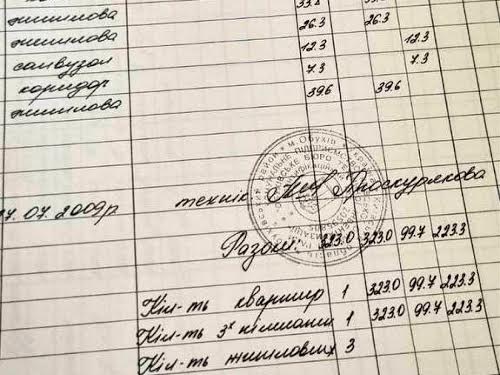 житлова 26.3 26.3
житлова 12.3 12.3
санвузол 7.3 7.3
коридор 39.6 39.6
житлова
17.07.2009р технік Проскурякова
м.Обухів
Разом: 323.0 323.0 99.7 223.3
Кіл-ть квартир 1 323.0 99.7 223.3
Кіл-ть 3х кімнатних 1 323.0 99.7 223.3
Кіл-ть житлових 3